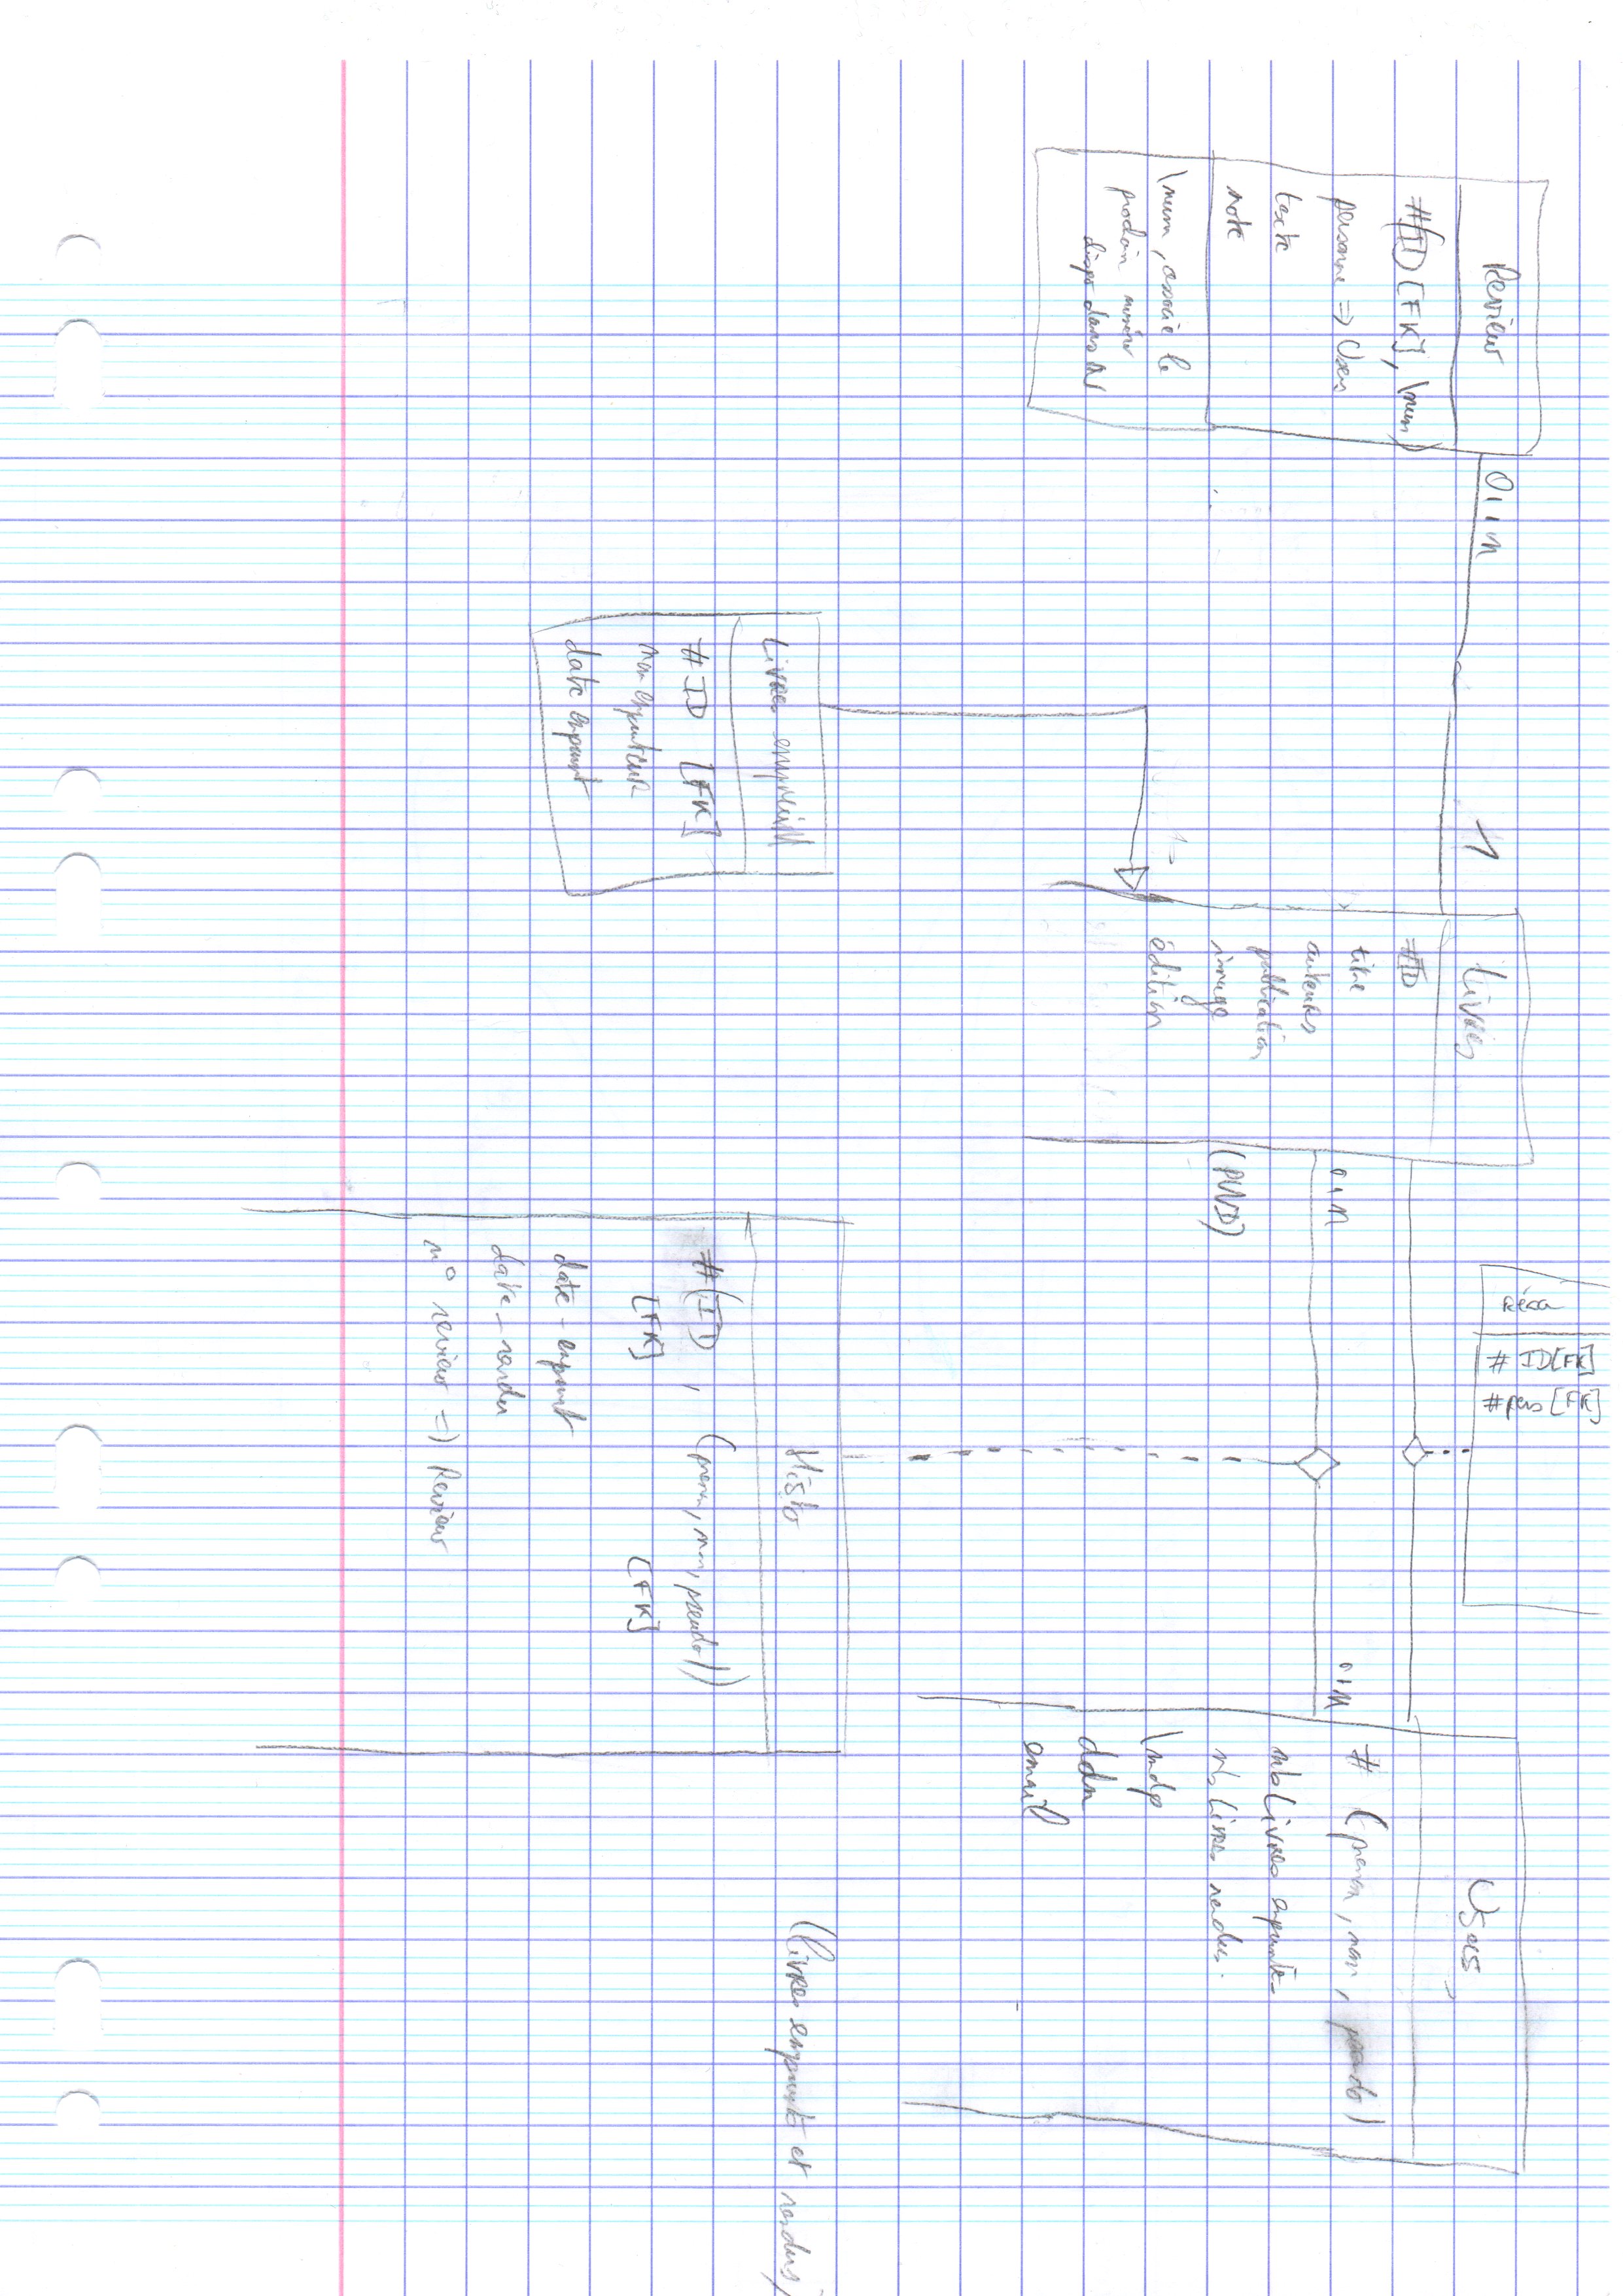 Review
#(ID [FK], \num)
personne => Users
texte
note
\num, associé le
prochain numéro
dispo dans N
0..n
1
Livres
#ID
titre
auteurs
publication
image
(PWD)
édition
Résa
# ID [FK]
# pers [FK]
0..n
0..n
Users
# (prenom, nom, pseudo)
nb Livres emprunté
nb Livres rendus
\mdp
ddn
email
Livres
#ID [FK]
nom emprunteur
date emprunt
Histo
#(ID, (prenom, nom, pseudo))
[FK] [FK]
date_emprunt
date_rendu
n° review => Review
(livres emprunté et rendus)